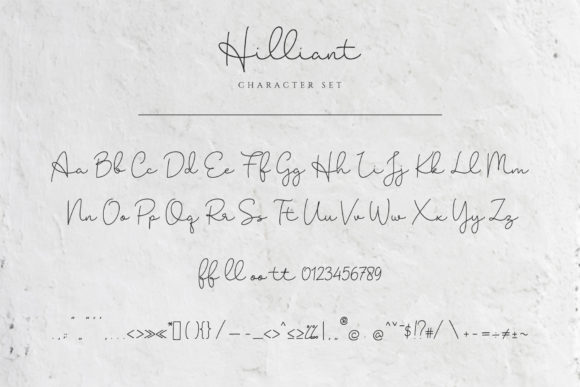 Hilliant
CHARACTER SET
Aa Bb Cc Dd Ee Ff Gg Hh Ii Jj Kk Ll Mm
Nn Oo Pp Qq Rr Ss Tt Uu Vv Ww Xx Yy Zz
ff ll oo tt 0123456789
<>≫≪*[](){}/—-_<>^≤≥ | ® © . @^˅~$!?#/ \ +-=÷≠±~